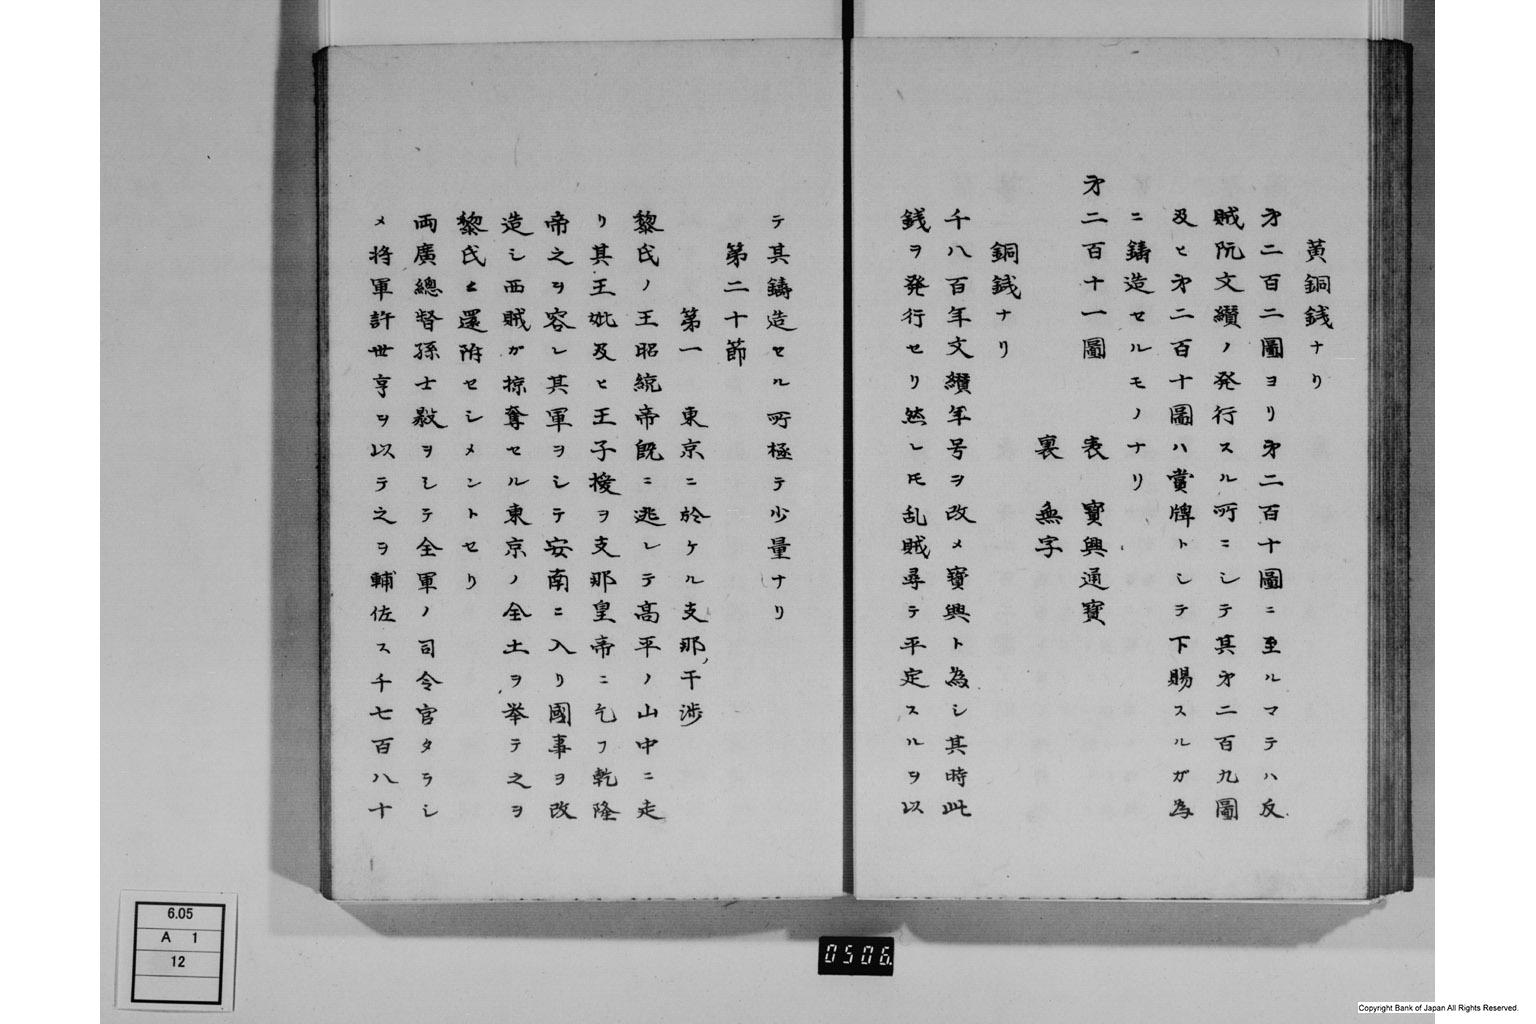 黄銅銭ナリ
才二百二圖ヨリ才二百十圖ニ至ルマテハ反
賊阮文纉ノ発行スル所ニシテ其才二百九圖
及ヒ才二百十圖ハ賞牌トシテ下賜スルガ為
ニ鋳造セルモノナリ
才二百十一圖　表　寳興通寳
裏　無字
銅銭ナリ
千八百年文纉年号ヲ改メ寳興ト為シ其時此
銭ヲ発行セリ然レ𪜈乱賊尋テ平定スルヲ以
テ其鋳造セル所極テ少量ナリ
第二十節
第一　東京ニ於ケル支那ノ干渉
黎氏ノ王昭統帝既ニ逃レテ高平ノ山中ニ走
リ其王妣及ヒ王子援ヲ支那皇帝ニ乞フ乾隆
帝之ヲ容レ其軍ヲシテ安南ニ入リ國事ヲ改
造シ西賊ガ掠奪セル東京ノ全土ヲ挙テ之ヲ
黎氏ニ還附セシメントセリ
両廣總督孫士毅ヲシテ全軍ノ司令官タラシ
メ将軍許世亨ヲ以テ之ヲ輔佐ス千七百八十
6.05
A 1
12
0506.
Copyright Bank of Japan All Rights Reserved.